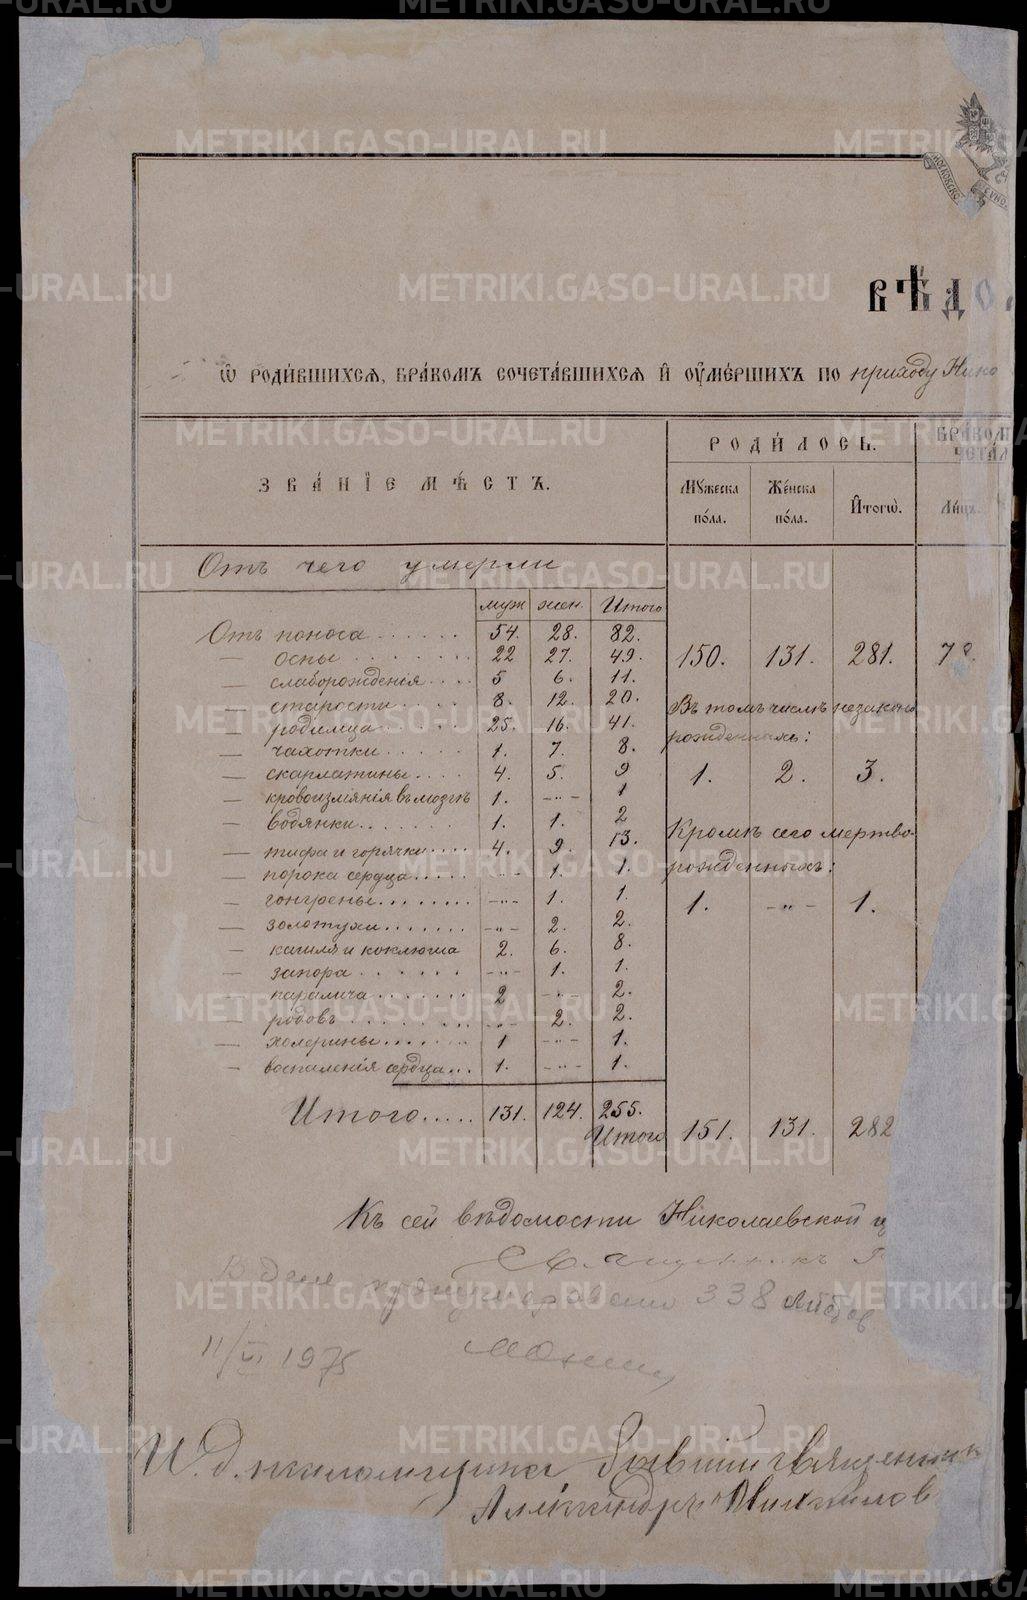 МОСКОВСКО
СѴНО
ВѢДО
Ѡ РОДИ́ВШИХСѦ, БРА́КОМЪ СОЧЕТА́ВШИХСѦ И҆ ОУ҆МЕ́РШИХЪ ПО приходу Нико
ЗВА́НІЕ МѢ́СТЪ.
РОДИ́ЛОСЬ.
БРА́КОМ
ЧЕТА́Л
Мꙋ́жеска по́ла.
Же́нска по́ла.
И҆тогѡ̀.
Ли́цъ.
Отъ чего умерли
муж жен. Итого
Отъ поноса . . . . . . 54. 28. 82.
— оспы . . . . . . . . 22 27. 49.
— слаборожденія . . . . 5 6. 11.
— старости . . . . . 8. 12. 20.
— родимца . . . . . . 25. 16. 41.
— чахотки . . . . . 1. 7. 8.
— скарлатины . . . . 4. 5. 9
— кровоизліянія въ мозгъ 1. -„- 1
— водянки . . . . . . 1. 1. 2
— тифа и горячки . . . . 4. 9. 13.
— порока сердца . . . . . -„- 1. 1.
— гонгрены . . . . . . . . -„- 1. 1.
— золотухи . . . . . . . -„- 2. 2.
— кашля и коклюша 2. 6. 8.
— запора . . . . . . -„- 1. 1.
— паралича . . . . . . . 2 -„- 2.
— родовъ . . . . . . . . -„- 2. 2.
— холерины . . . . . . . 1 -„- 1.
— воспаленія сердца . . . 1. -„- 1.
Итого . . . . . 131. 124. 255.
150. 131. 281. 7
Въ томъ числѣ незаконо
рожденныхъ:
1. 2. 3.
Кромѣ сего мертво-
рожденныхъ:
1. -„- 1.
Итого 151. 131. 282
Къ сей вѣдомости Николаевской ц
Священникъ
В деле пронумеровано 338 листов
11/VI 1975
И. д. псаломщика, бывший священник
Александръ
METRIKI.GASO-URAL.RU